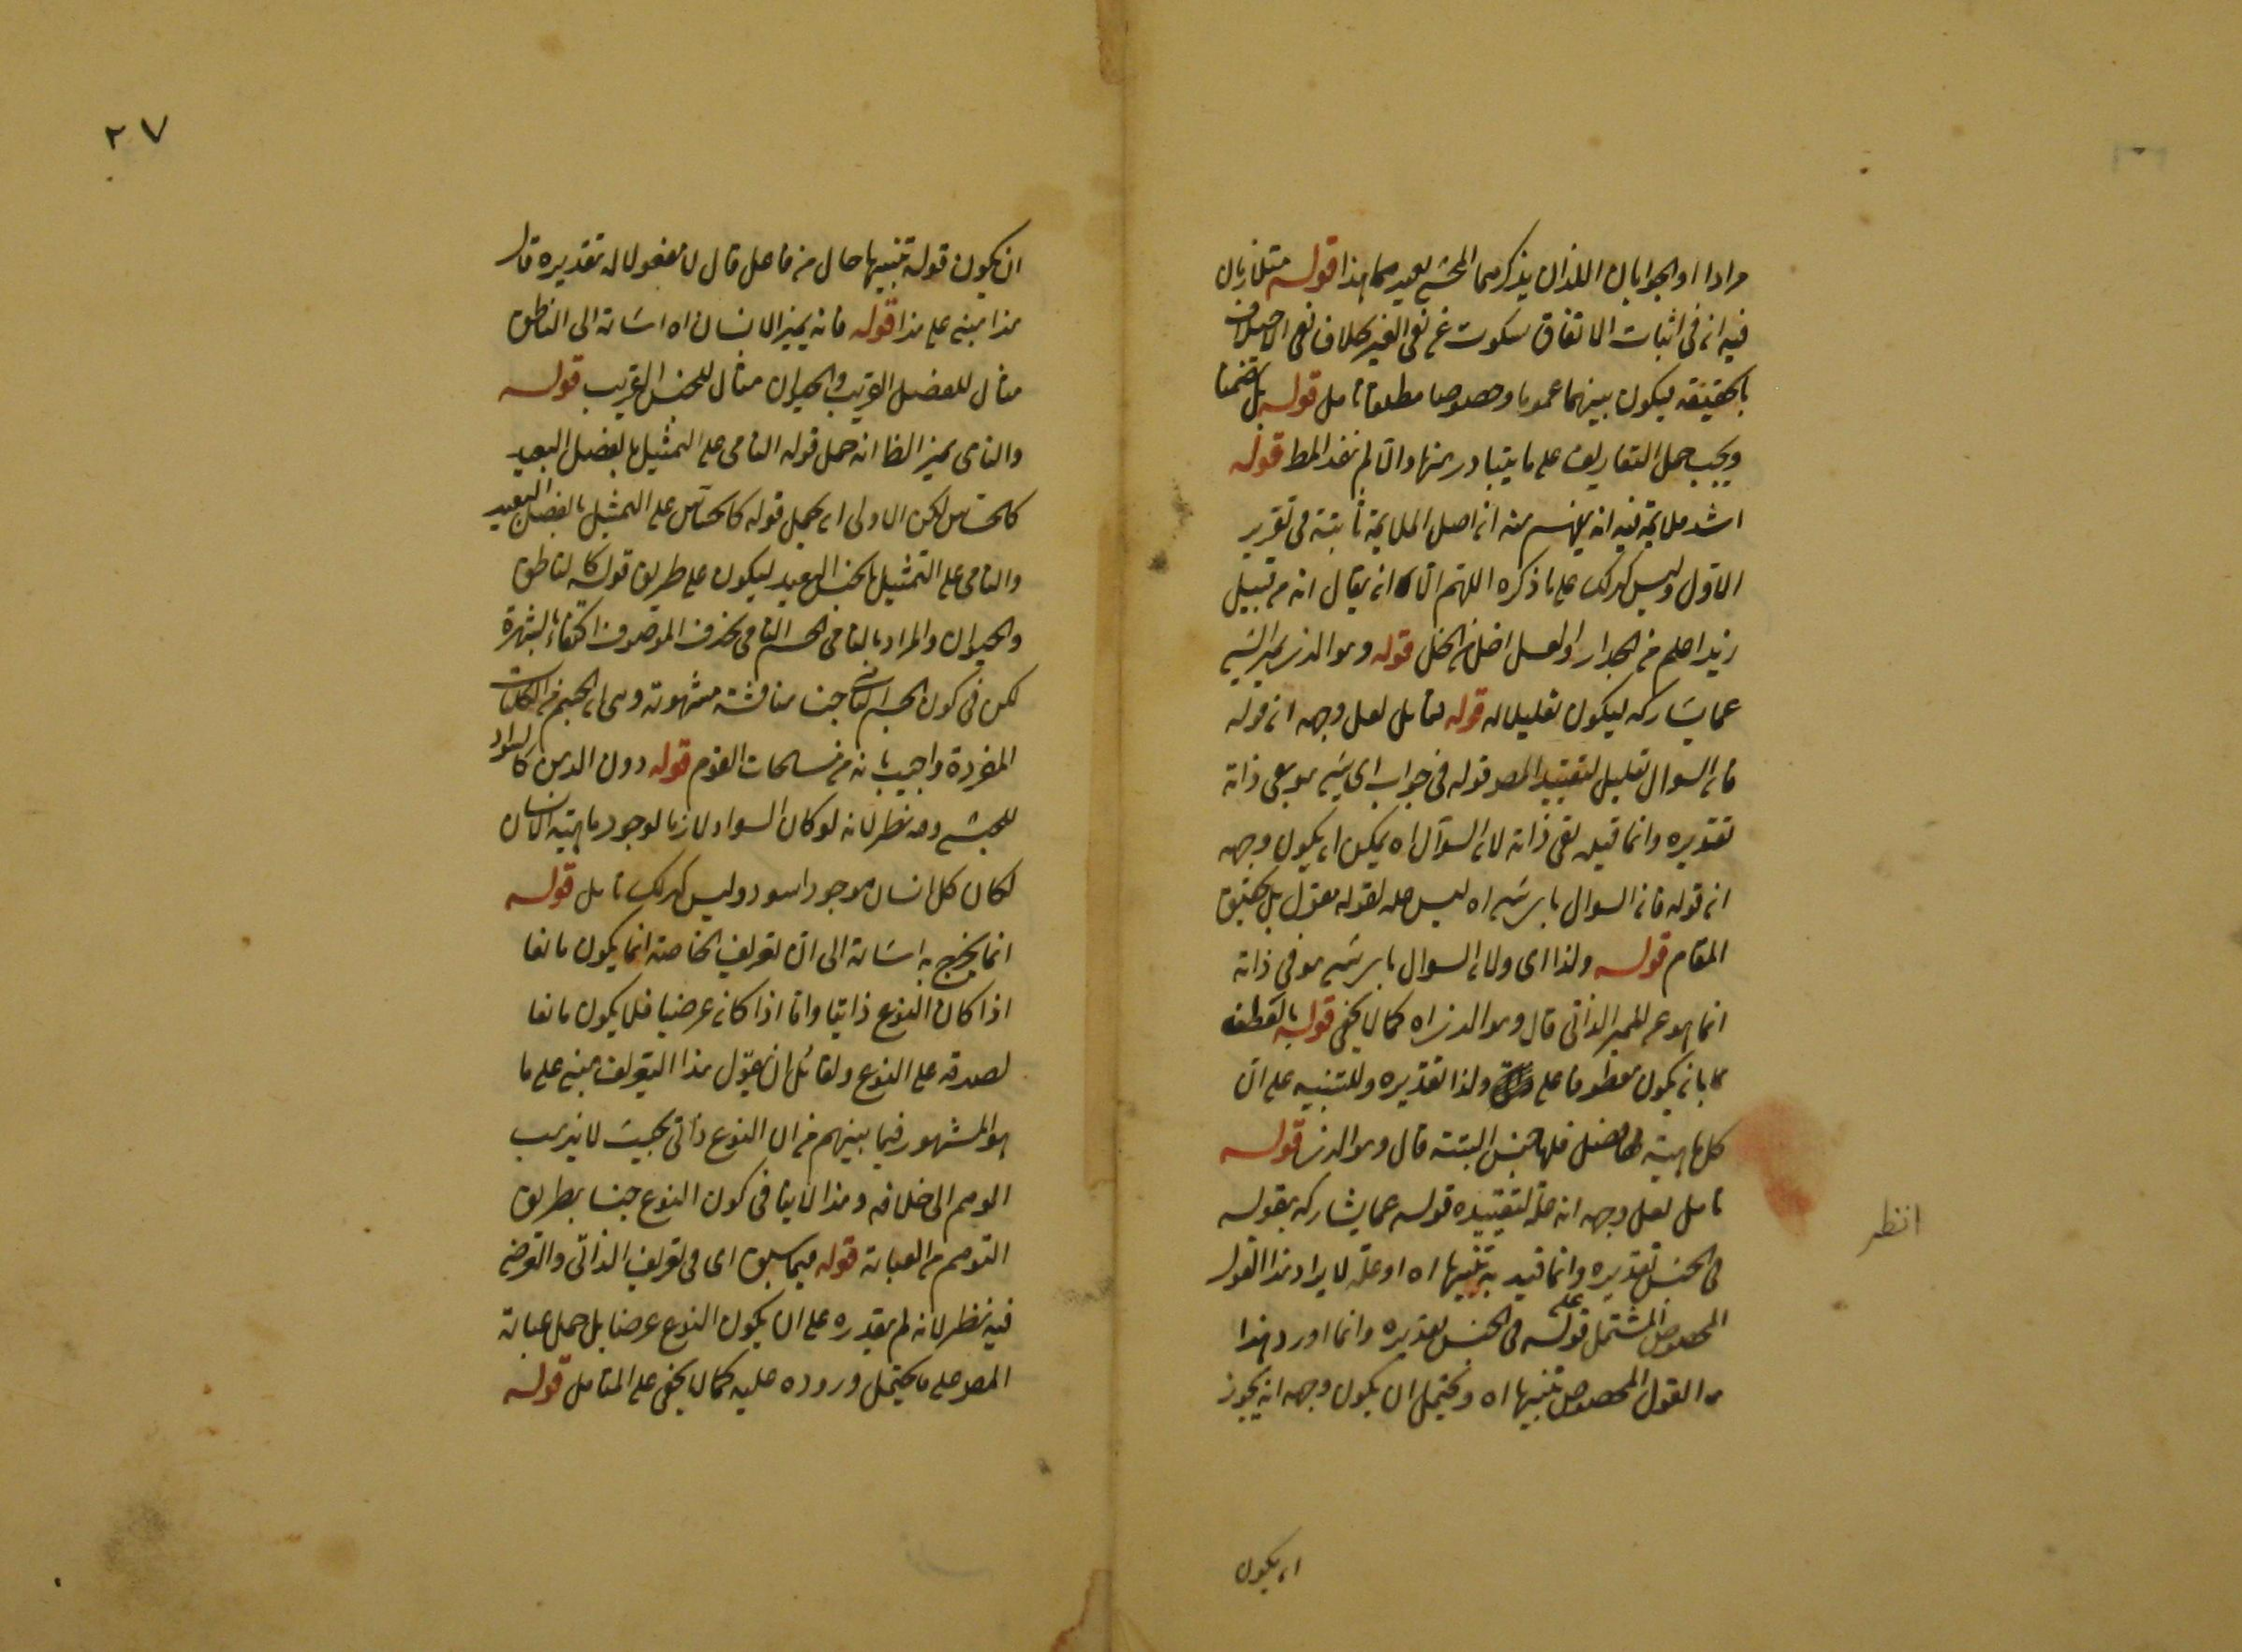 مرادا او الجوابان اللذان يذكرهما المحشي بعيد هذا قوله متقاربان
فيه ان في اثبات الاتفاق سكوت عن نفي الغير بخلاف نفي الاختلاف
بالحقيقة فيكون بينهما عموما وخصوصا مطلقا تأمل قوله بل ضمنا
ويجب حمل التعاريف على ما يتبادر منها والا لم تفد المط قوله
اشد ملايمة فيه انه يفهم منه ان اصل الملايمة ثابتة في تقرير
الاول وليس كذلك على ما ذكره اللهم الا ان يقال انه من قبيل
زيد اعلم من الجدار والعسل احلى من الخل قوله وهو الذي يميز الشيء
عما يشاركه ليكون تعليلا له قوله تأمل لعل وجهه ان قوله
فان السوال تعليل لتقييد المص قوله في جواب اي شيء هو بفي ذاته
تقديره وانما قيد بفي ذاته لان السؤال اه يمكن ان يكون وجهه
ان قوله فان السوال باي شيء اه ليس علة لقوله مقول بل تحقيق
المقام قوله ولذا اى ولان السوال باي شيء هو في ذاته
انما هو عن المميز الذاتي قال وهو الذي اه كما لا يخفى قوله بالعطف
بان يكون معطوفا على ولذا تقديره وللتنبيه على ان
كل ماهية لها فصل فلها جنس البتة قال وهو الذي قوله
تأمل لعل وجهه انه علة لتقييده قوله عما يشاركه بقوله
في الجنس تقديره وانما قيد به تنبيها اه او علة لايراد هذا القول
المخصوص المشتمل على قوله في الجنس تقديره وانما اورد هذا
القول المخصوص تنبيها اه ويحتمل ان يكون وجهه انه يجوز
ان يكون
انظر
٢٧
ان يكون قوله تنبيها حال من فاعل قال لا مفعولا له تقديره قال
هذا مبنى على هذا قوله فانه يميز الانسان اه اشارة الى الناطق
مثال للفصل القريب والحيوان مثال للجنس القريب قوله
والنامى يميز الظا انه حمل قوله النامى على التمثيل بالفصل البعيد
كالحساس لكن الاولى ان يحمل قوله كالحساس على التمثيل بالفصل البعيد
والنامى على التمثيل بالجنس البعيد ليكون على طريق قوله كالناطق
والحيوان والمراد بالنامى الجسم النامى بحذف الموصوف اكتفاء بالشهرة
لكن في كون الجسم النامى جنسا مناقشة مشهورة وهى ان الجنس من الكليات
المفردة واجيب بانه من مسامحات القوم قوله دون الذهن كالسواد
للحبشي وفيه نظر لانه لو كان السواد لازما لوجود ماهية الانسان
لكان كل انسان موجود اسود وليس كذلك تأمل قوله
انما يخرج به اشارة الى ان تعريف الخاصة انما يكون مانعا
اذا كان النوع ذاتيا واما اذا كان عرضيا فلا يكون مانعا
لصدقه على النوع ولقائل ان يقول هذا التعريف مبنى على ما
هو المشهور فيما بينهم من ان النوع ذاتى بحيث لا يذهب
الوهم الى خلافه وهذا لا ينافى كون النوع جنسا بطريق
التوهم من العبارة قوله فيما سبق اى فى تعريف الذاتى والعرضي
فيه نظر لانه لم يقدره على ان يكون النوع عرضيا بل حمل عبارة
المص على ما يحتمل وروده عليه كما لا يخفى على المتأمل قوله